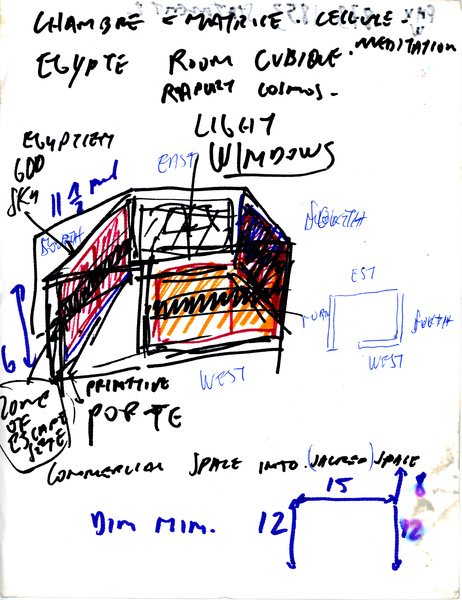 CHAMBRE = MATRICE. CELLULE.
MEDITATION
EGYPTE ROOM CUBIQUE.
RAPORT COSMOS.
LIGHT
WINDOWS
EGYPTIEM
GOD
SKY
11 1/2
EAST
SOUTH
EST
SOUTH
WEST
6
WEST
PRIMITIVE
PORTE
ZONE
OF
ESCAPE
COMMERCIAL SPACE INTO (SACRED) SPACE
15
8
DIM MIM.
12
12